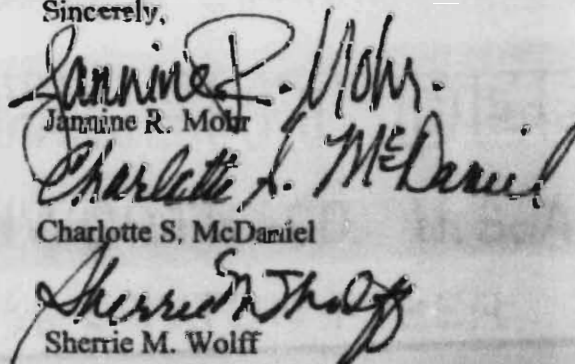 Sincerely,
Jannine R. Mohr.
Jannine R. Mohr
Charlotte S. McDaniel
Charlotte S. McDaniel
Sherrie M Wolff
Sherrie M. Wolff